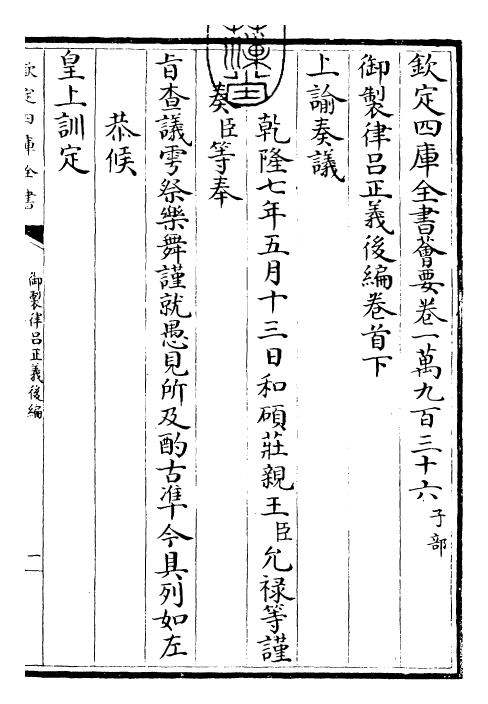 欽定四庫全書薈要卷一萬九百三十六子部
御製律呂正義後編卷首下
上諭奏議
乾隆七年五月十三日和碩莊親王臣允祿等謹
奏臣等奉
㫖查議雩祭樂舞謹就愚見所及酌古準今具列如左
恭候
皇上訓定
欽定四庫全書
御製律呂正義後編
一